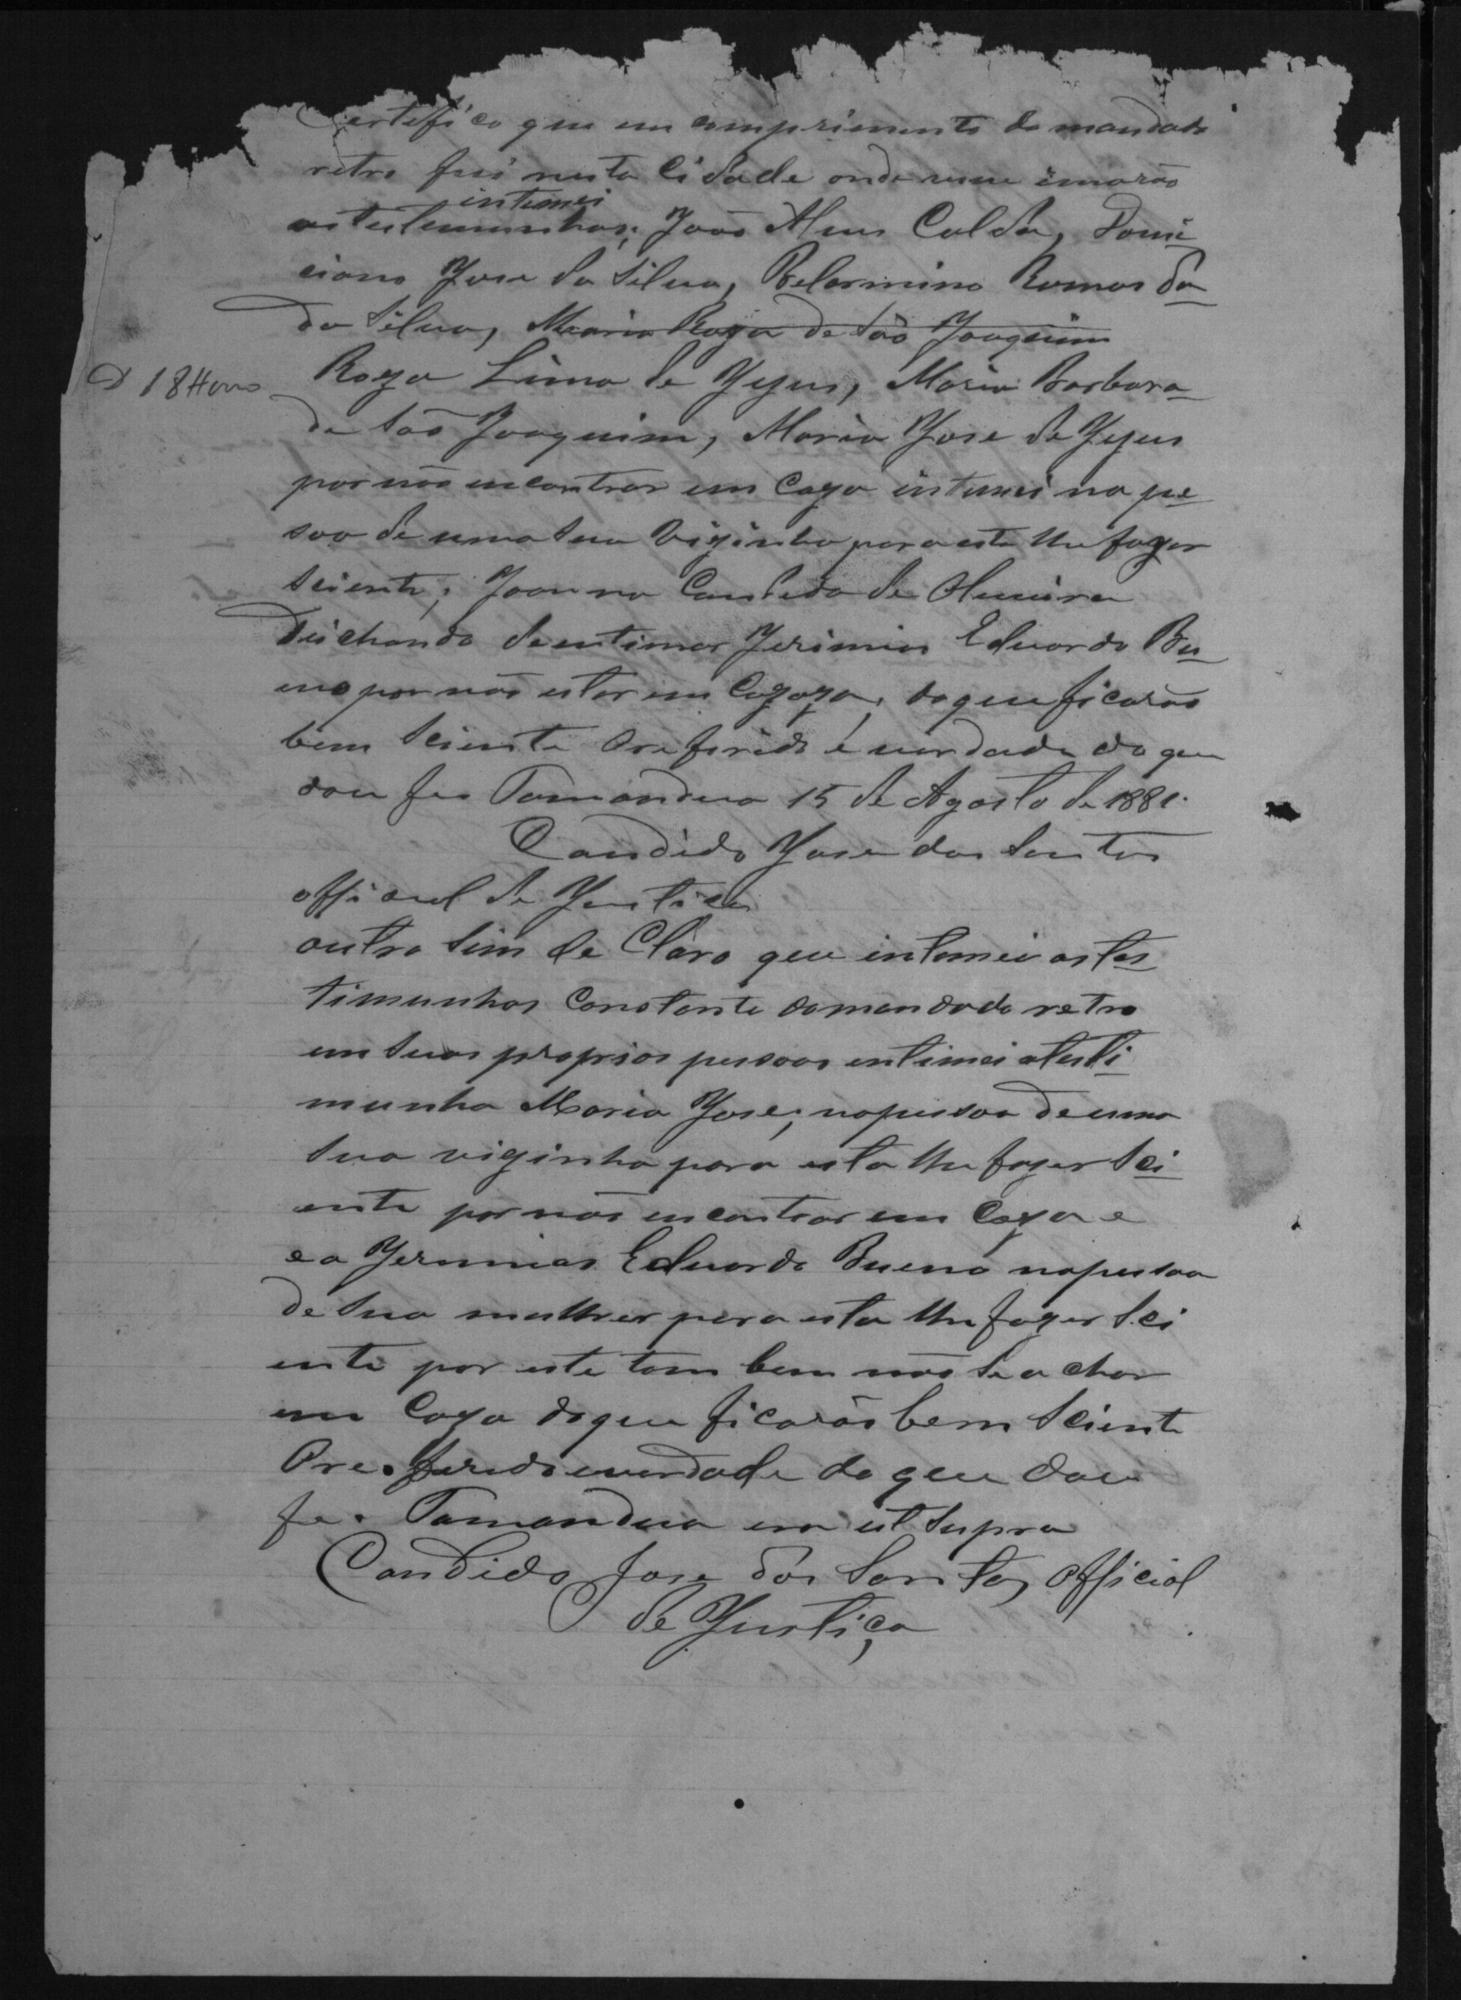 Certefico que em comprimento do mandado
retro fui nesta Cidade onde
intimei
as testemunhas; João Alves Calda, Domi
ciano Jose da Silva, Belarmino Ramos da
da Silva, Maria Roza de São Joaquim
D 18 Hono
Roza Lima de Yezus, Maria Barbara
de São Joaquim, Maria Yose de Yezus
por não encontrar em Caza intimei na pe
soa de uma sua Vizinha para esta lhe fazer
sciente; Joanna Candida de Oliveira
Deichando de intimar Yerimias Eduardo Bu
eno por não estar em Cazaza, do que ficarão
bem Sciente Oreferido é verdade do que
dou fee Tamandua 15 de Agosto de 1881.
Candido Yose dos Santos
official de Yustiça
outro Sim de Claro que intimei as tes
timunhas Constante do mandado retro
em suas proprias pessoas entimei a testi
munha Maria Yose; na pessoa de uma
sua viginha para esta lhe fazer Sci
ente por não encontrar em Caza e
e a Yeremias Eduardo Bueno na pessoa
de sua mulher para esta lhe fazer Sci
ente por este tam bem não se a char
em Caza do que ficarão bem Sciente
Ore. ferido e verdade do que dou
fe. Tamandua era ut supra
Candido Jose dos Santos Official
de Yustiça